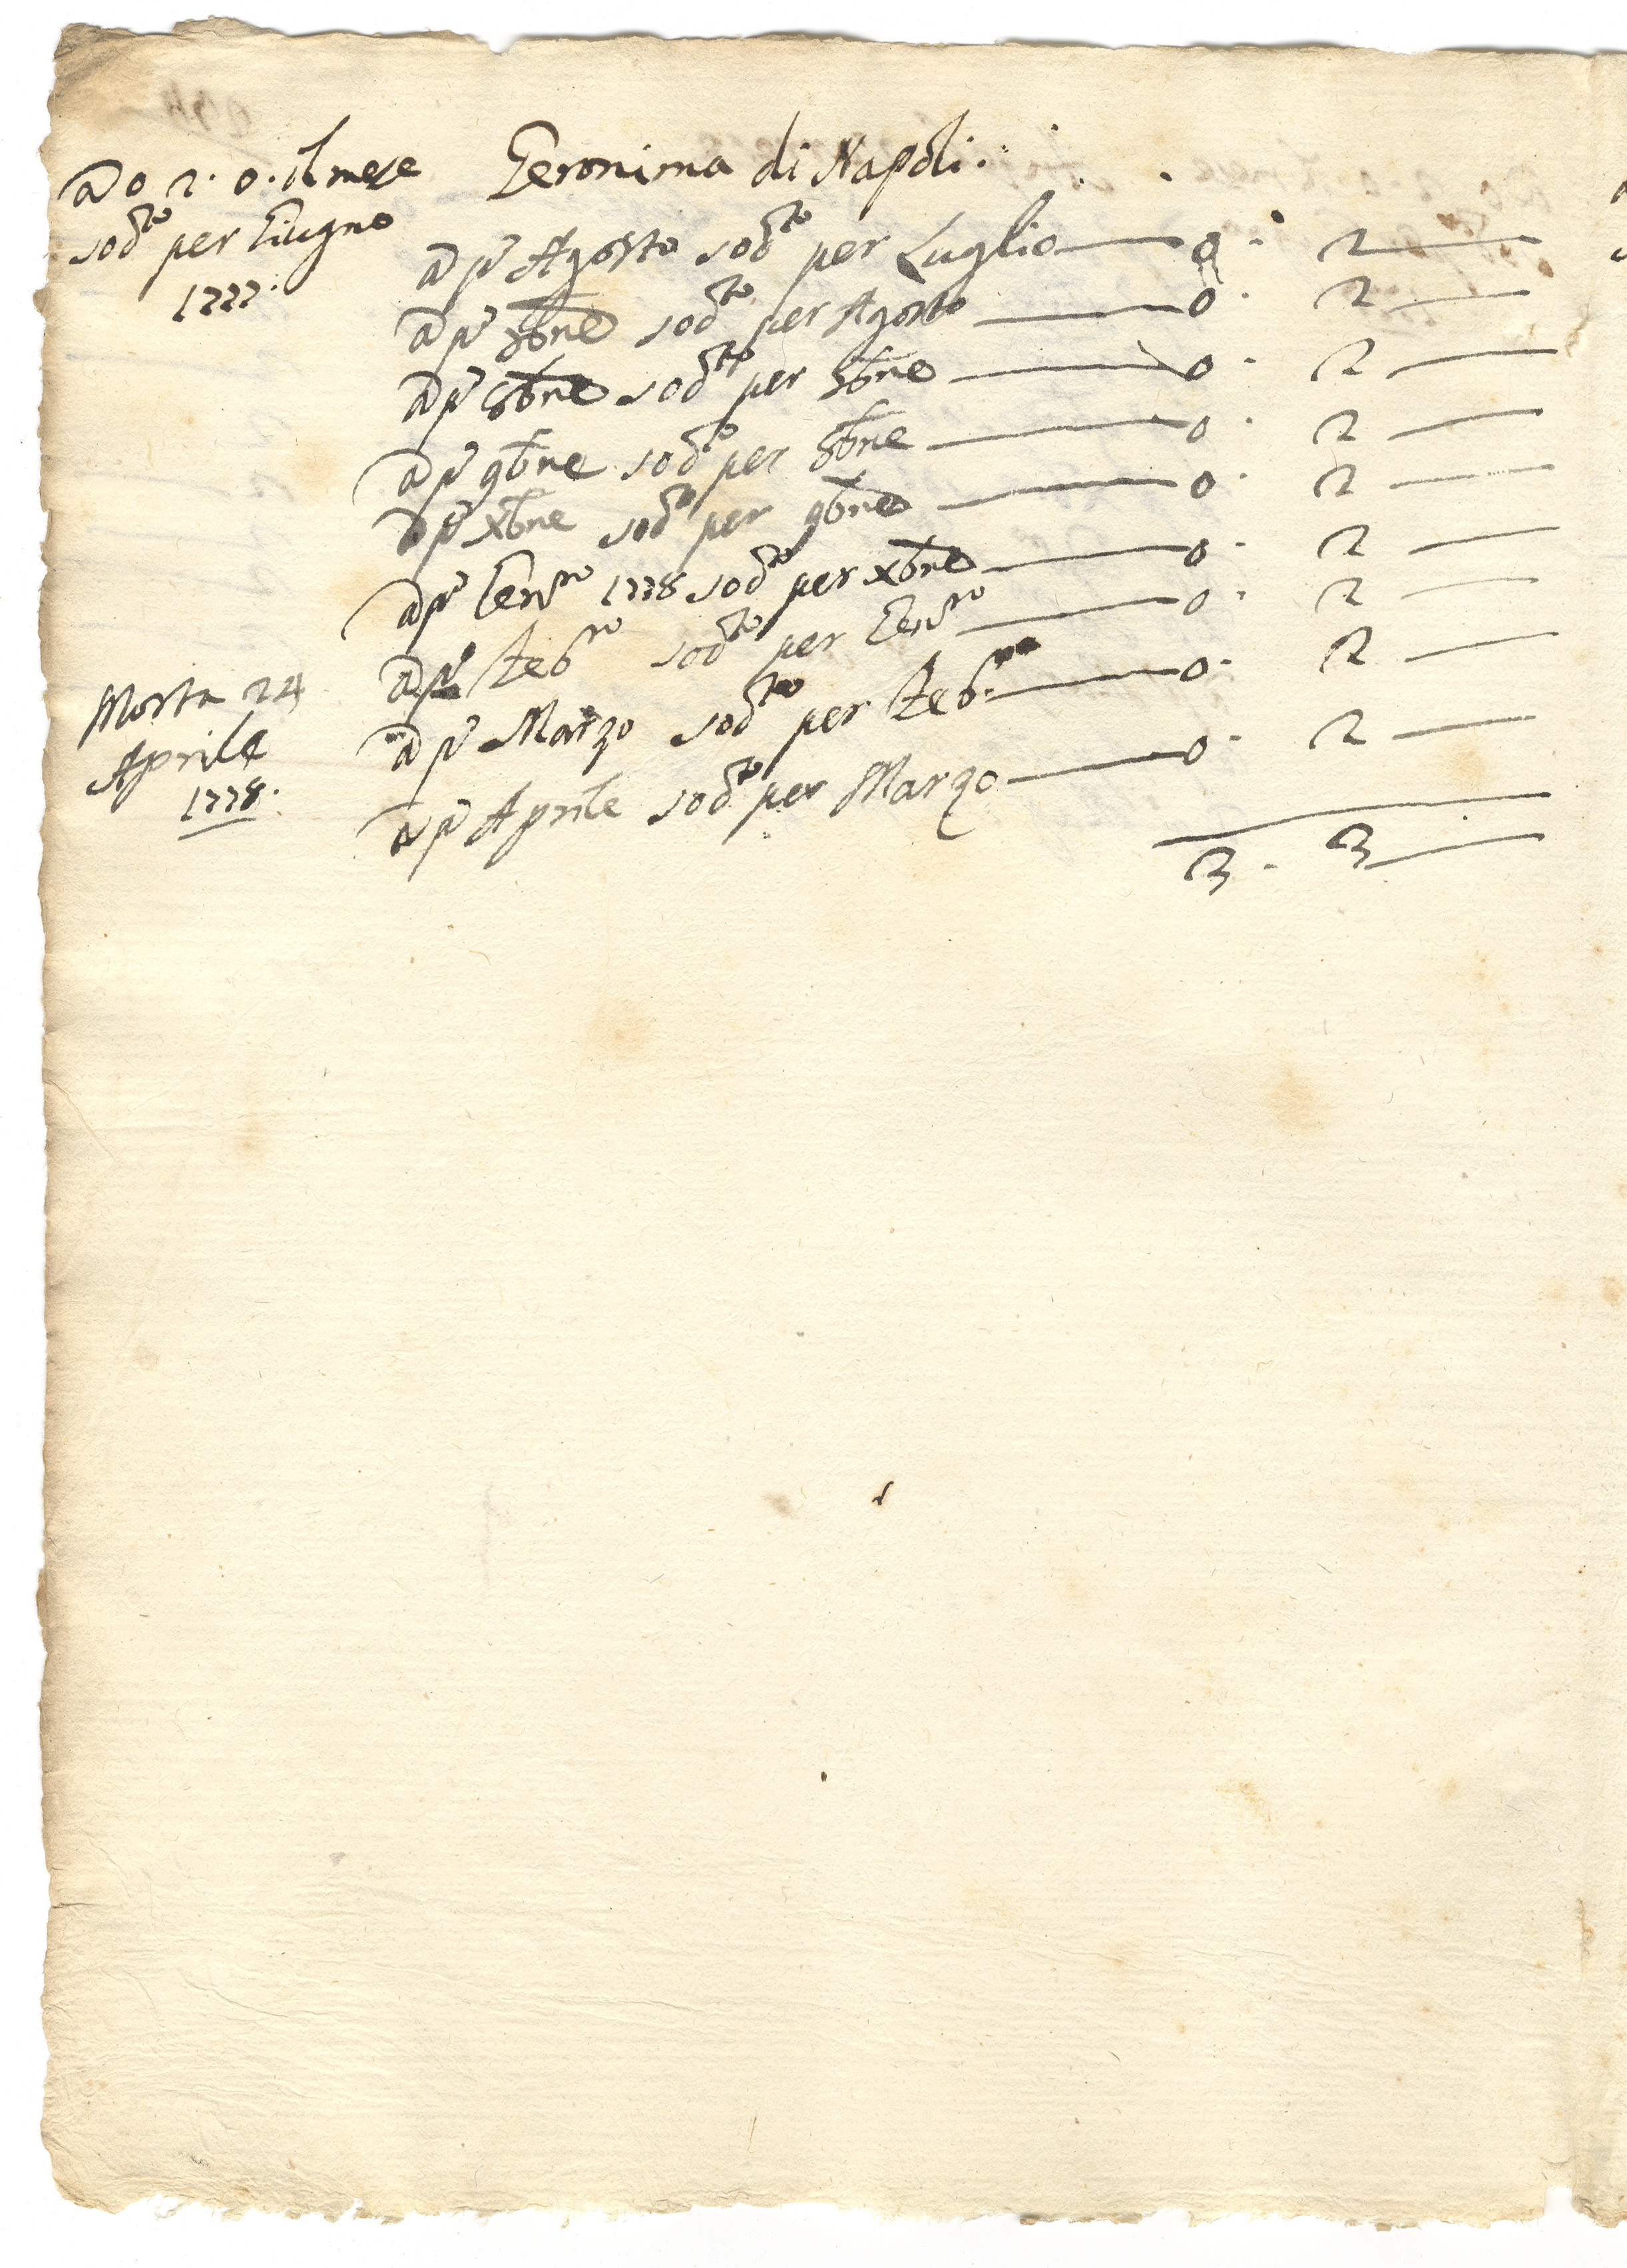 a 0 2. 0. il mese Geronima di Napoli.
sodto per Giugno
1777.
a pº Agosto sodto per Luglio — 0. 2 —
a pº 7bre sodto per Agosto — 0. 2 —
a pº 8bre sodto per 7bre — 0. 2 —
a pº 9bre sodto per 8bre — 0. 2 —
a pº Xbre sodto per 9bre — 0. 2 —
a pº Genro 1778 sodto per Xbre — 0. 2 —
a pº Febro sodto per Genro — 0. 2 —
a pº Marzo sodto per Febro — 0. 2 —
a pº Aprile sodto per Marzo — 0. 2 —
3. 3 —
Morta 24
Aprile
1778.